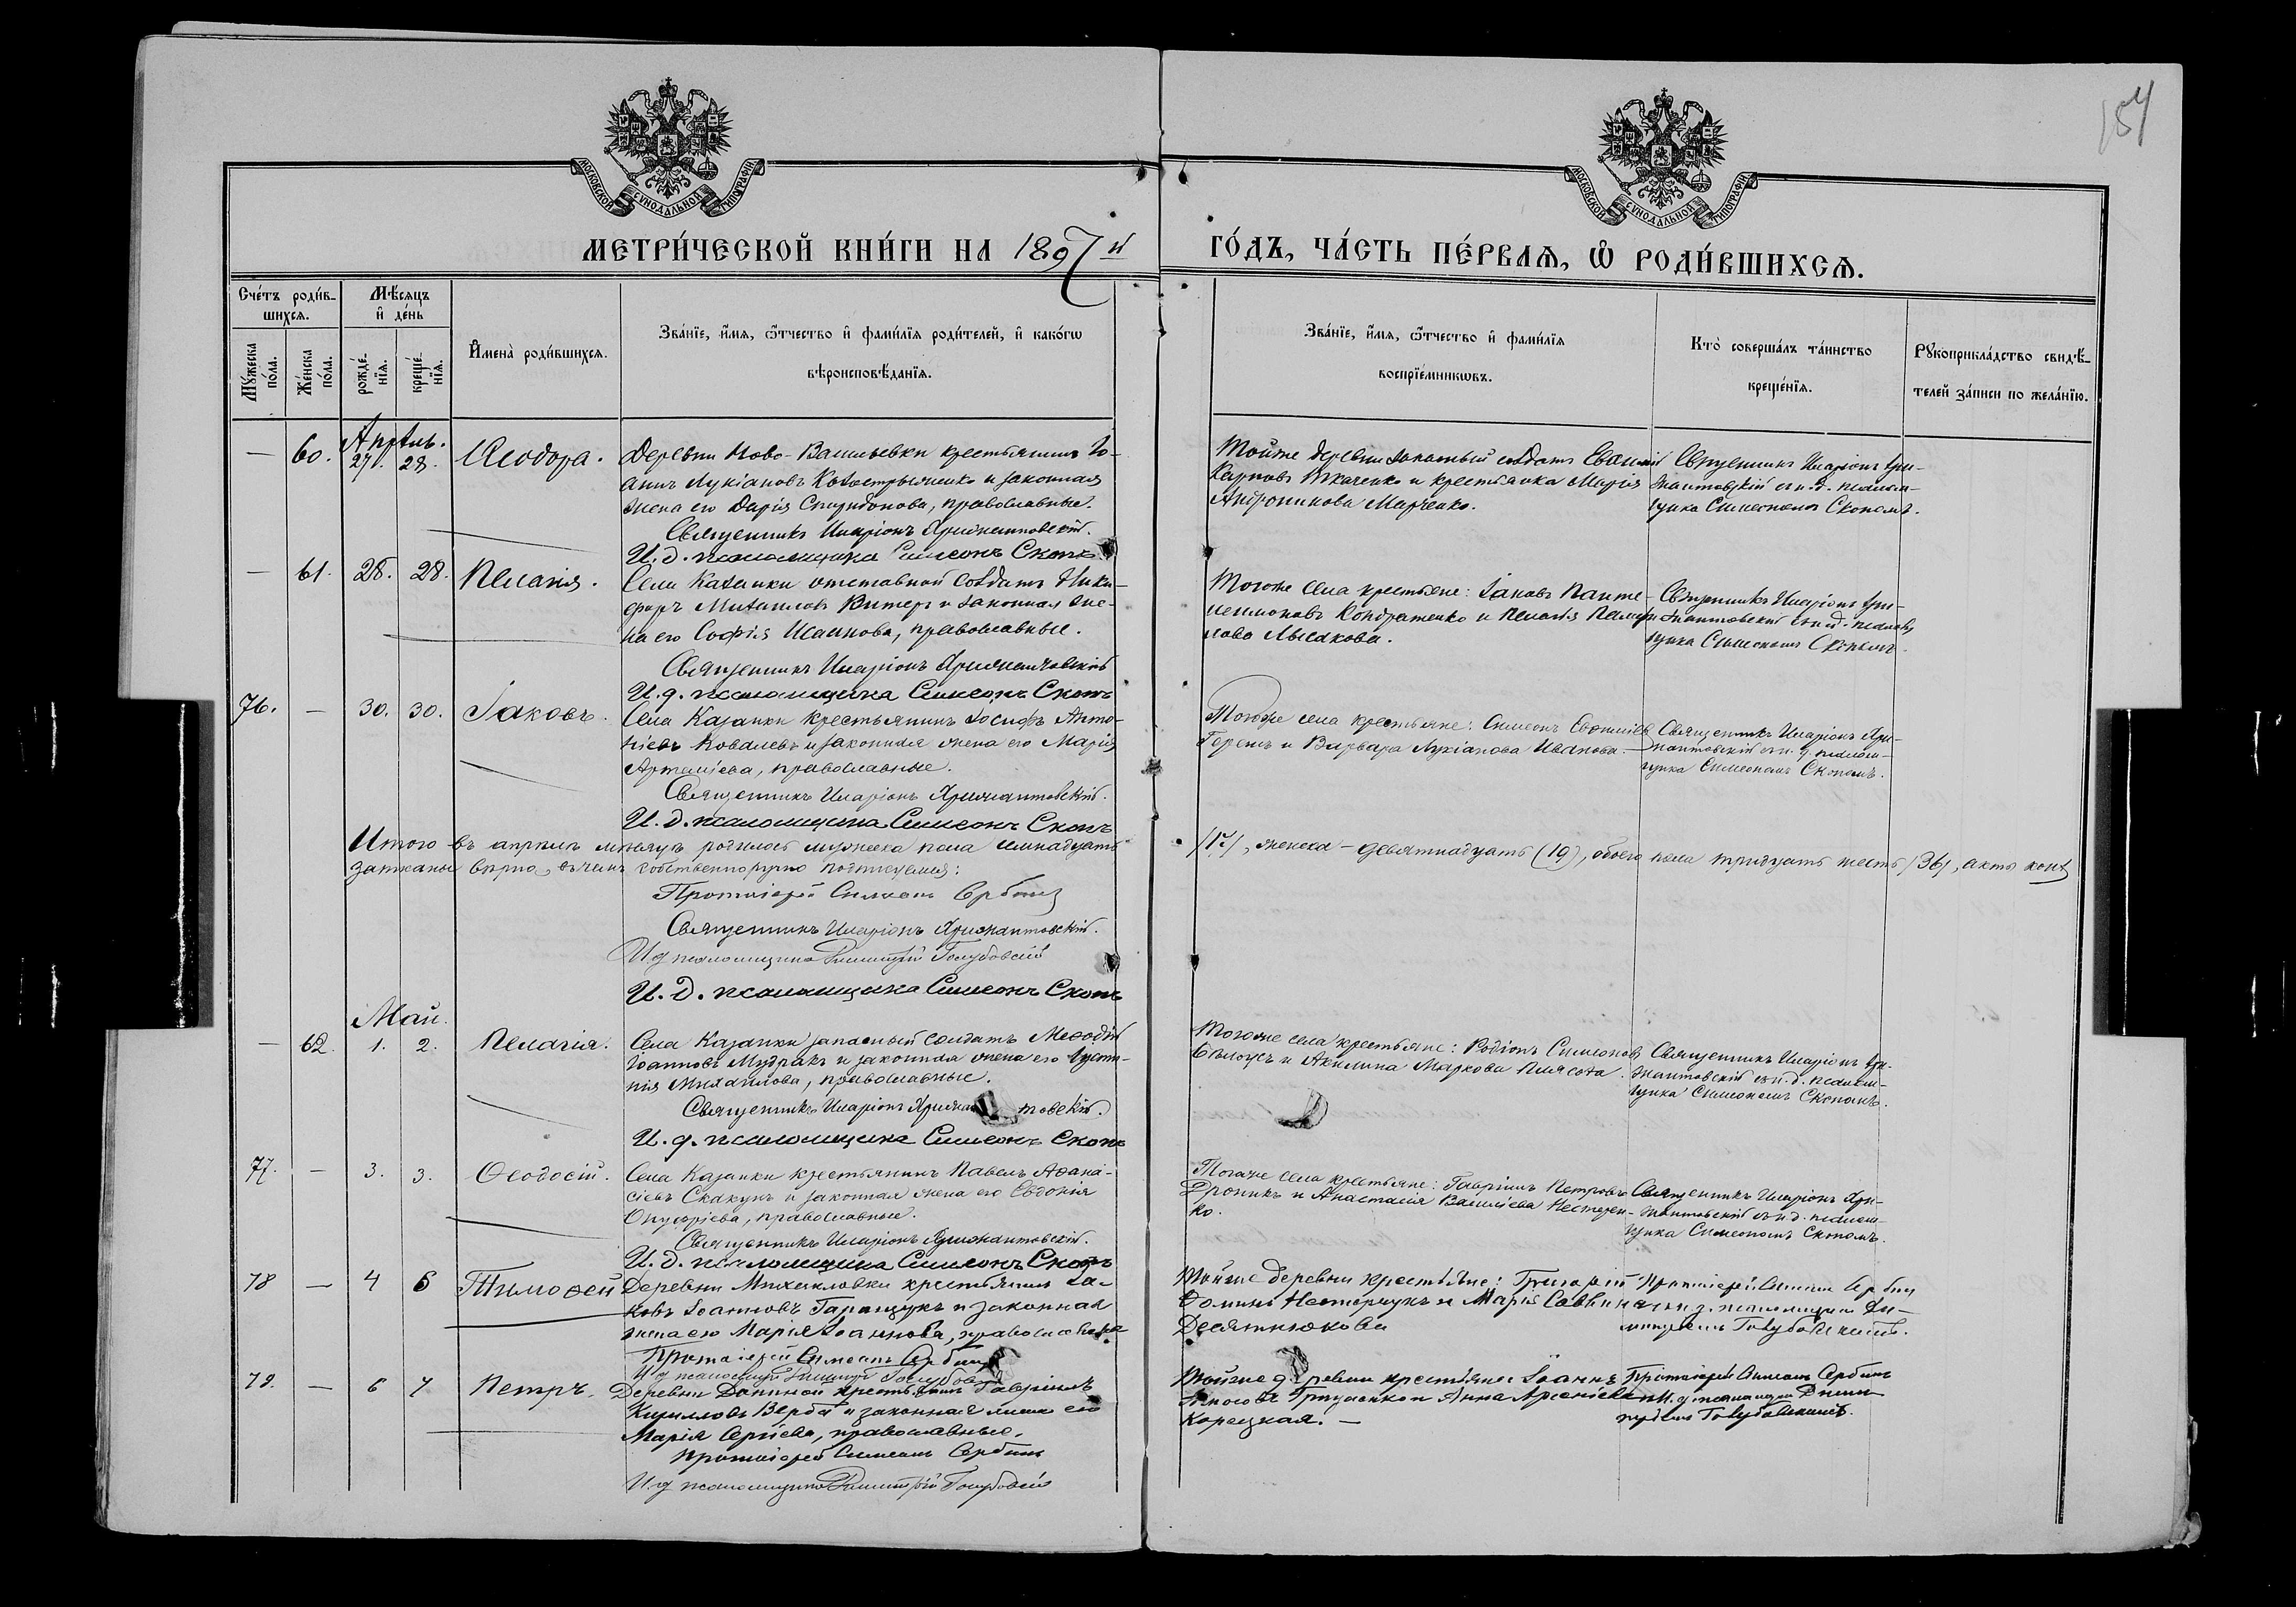 154
МОСКОВСКОЙ СѴНОДАЛЬНОЙ ТИПОГРАФІИ
МОСКОВСКОЙ СѴНОДАЛЬНОЙ ТИПОГРАФІИ
МЕТРИ́ЧЕСКОЙ КНИ́ГИ НА 1897й ГО́ДЪ, ЧА́СТЬ ПЕ́РВАѦ, Ѡ РОДИ́ВШИХСѦ.
Сче́тъ роди́в-
шихсѧ.
Мꙋ́жеска
по́ла.
Же́нска
по́ла.
Мѣ́сѧцъ
и҆ де́нь
рожде́-
нїѧ.
креще́-
нїѧ.
И҆мена̀ роди́вшихсѧ.
Зва́нїе, и҆́мѧ, ѻ҆́тчество и҆ фами́лїѧ роди́телей, и҆ како́гѡ
вѣроисповѣ́данїѧ.
Зва́нїе, и҆́мѧ, ѻ҆́тчество и҆ фами́лїѧ
воспрїе́мникѡвъ.
Кто̀ соверша́лъ та́инство
креще́нїѧ.
Рꙋкоприкла́дство свидѣ́-
телей за́писи по жела́нїю.
— 60. Апрѣль.
27. 28. Ѳеодора.
Деревни Ново-Васильевки крестьянинъ Іо-
аннъ Лукіановъ и законная
жена его Дарія Спиридонова, православные.
Священникъ Иларіонъ Крижантовскій.
И. д. псаломщика Симеонъ Скопъ
Тойже деревни запасный солдатъ
Карповъ Ткаченко и крестьянка Марія
Андроникова Марченко.
Священникъ Иларіонъ Кри-
жантовскій съ и. д. псалом-
щика Симеономъ Скопомъ.
— 61. 28. 28. Пелагія.
Села Казанки отставной солдатъ Ники-
форъ Михаиловъ и законная же-
на его Софія Исаакова, православные.
Священникъ Иларіонъ Крижантовскій
И. д. псаломщика Симеонъ Скопъ
Тогоже села крестьяне: Іаковъ Панте-
леимоновъ Кондратенко и Пелагія
Лысакова.
Священникъ Иларіонъ Кри-
жантовскій съ и. д. псаломщика
Симеономъ Скопомъ.
76. — 30. 30. Іаковъ.
Села Казанки крестьянинъ Іосифъ Анто-
ніевъ Ковалевъ и законная жена его Марія
Артеміева, православные.
Священникъ Иларіонъ Крижантовскій.
И. д. псаломщика Симеонъ Скопъ
Тогоже села крестьяне: Симеонъ Евфиміевъ
и Варвара Лукіанова Иванова.
Священникъ Иларіонъ Кри-
жантовскій съ и. д. псалом-
щика Симеономъ Скопомъ.
Итого въ апрѣлѣ мѣсяцѣ родилось мужеска пола семнадцать /17/, женска — девятнадцать (19), обоего пола тридцать шесть /36/, акты
записаны вѣрно, въ чемъ собственноручно подписуемся:
Протоіерей Симеонъ Сербинъ
Священникъ Иларіонъ Крижантовскій.
И д псаломщика Димитрій Голубовскій
И. д. псаломщика Симеонъ Скопъ
Май.
— 62. 1. 2. Пелагія.
Села Казанки запасный солдатъ Меѳодій
Іоанновъ Мудракъ и законная жена его Іусти-
нія Михаилова, православные.
Священникъ Иларіонъ Крижантовскій.
И. д. псаломщика Симеонъ Скопъ
Тогоже села крестьяне: Родіонъ Симеоновъ
Бѣлоусъ и Акилина Маркова
Священникъ Иларіонъ Кри-
жантовскій съ и. д. псалом-
щика Симеономъ Скопомъ.
77. — 3. 3. Ѳеодосій.
Села Казанки крестьянинъ Павелъ Аѳана-
сіевъ Скакунъ и законная жена его Евдокія
Онуфріева, православные.
Священникъ Иларіонъ Крижантовскій.
И. д. псаломщика Симеонъ Скопъ
Тогоже села крестьяне: Гавріилъ Петровъ
Дроникъ и Анастасія Василіева Нестерен-
ко.
Священникъ Иларіонъ Кри-
жантовскій съ и. д. псалом-
щика Симеономъ Скопомъ.
78 — 4 6 Тимоѳей
Деревни Михайловки крестьянинъ Іа-
ковъ Іоанновъ Гаращукъ и законная
жена его Марія Іоаннова, православные
Протоіерей Симеонъ Сербинъ
И д псаломщика Димитрій Голубовскій
Тойже деревни крестьяне: Григорій
Нестерчукъ и Марія Саввина
Десятнюкова
Протоіерей Симеонъ Сербинъ
съ и д. псаломщика Ди-
митріемъ Голубовскимъ.
79. — 6 7 Петръ.
Деревни крестьянинъ Гавріилъ
Кирилловъ Верба и законная жена его
Марія Сергіева, православные.
Протоіерей Симеонъ Сербинъ
И д псаломщика Димитрій Голубовскій
Тойже деревни крестьяне: Іоаннъ
Гриценко и Анна Арсеніева
Корецкая. —
Протоіерей Симеонъ Сербинъ
съ и. д. псаломщика Дими-
тріемъ Голубовскимъ.